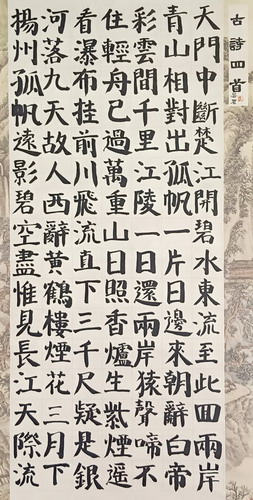 古詩四首
天門中斷楚江開碧水東流至此回兩岸
青山相對出孤帆一片日邊來朝辭白帝
彩雲間千里江陵一日還兩岸猿聲啼不
住輕舟已過萬重山日照香爐生紫煙遥
看瀑布挂前川飛流直下三千尺疑是銀
河落九天故人西辭黃鶴樓煙花三月下
揚州孤帆遠影碧空盡惟見長江天際流